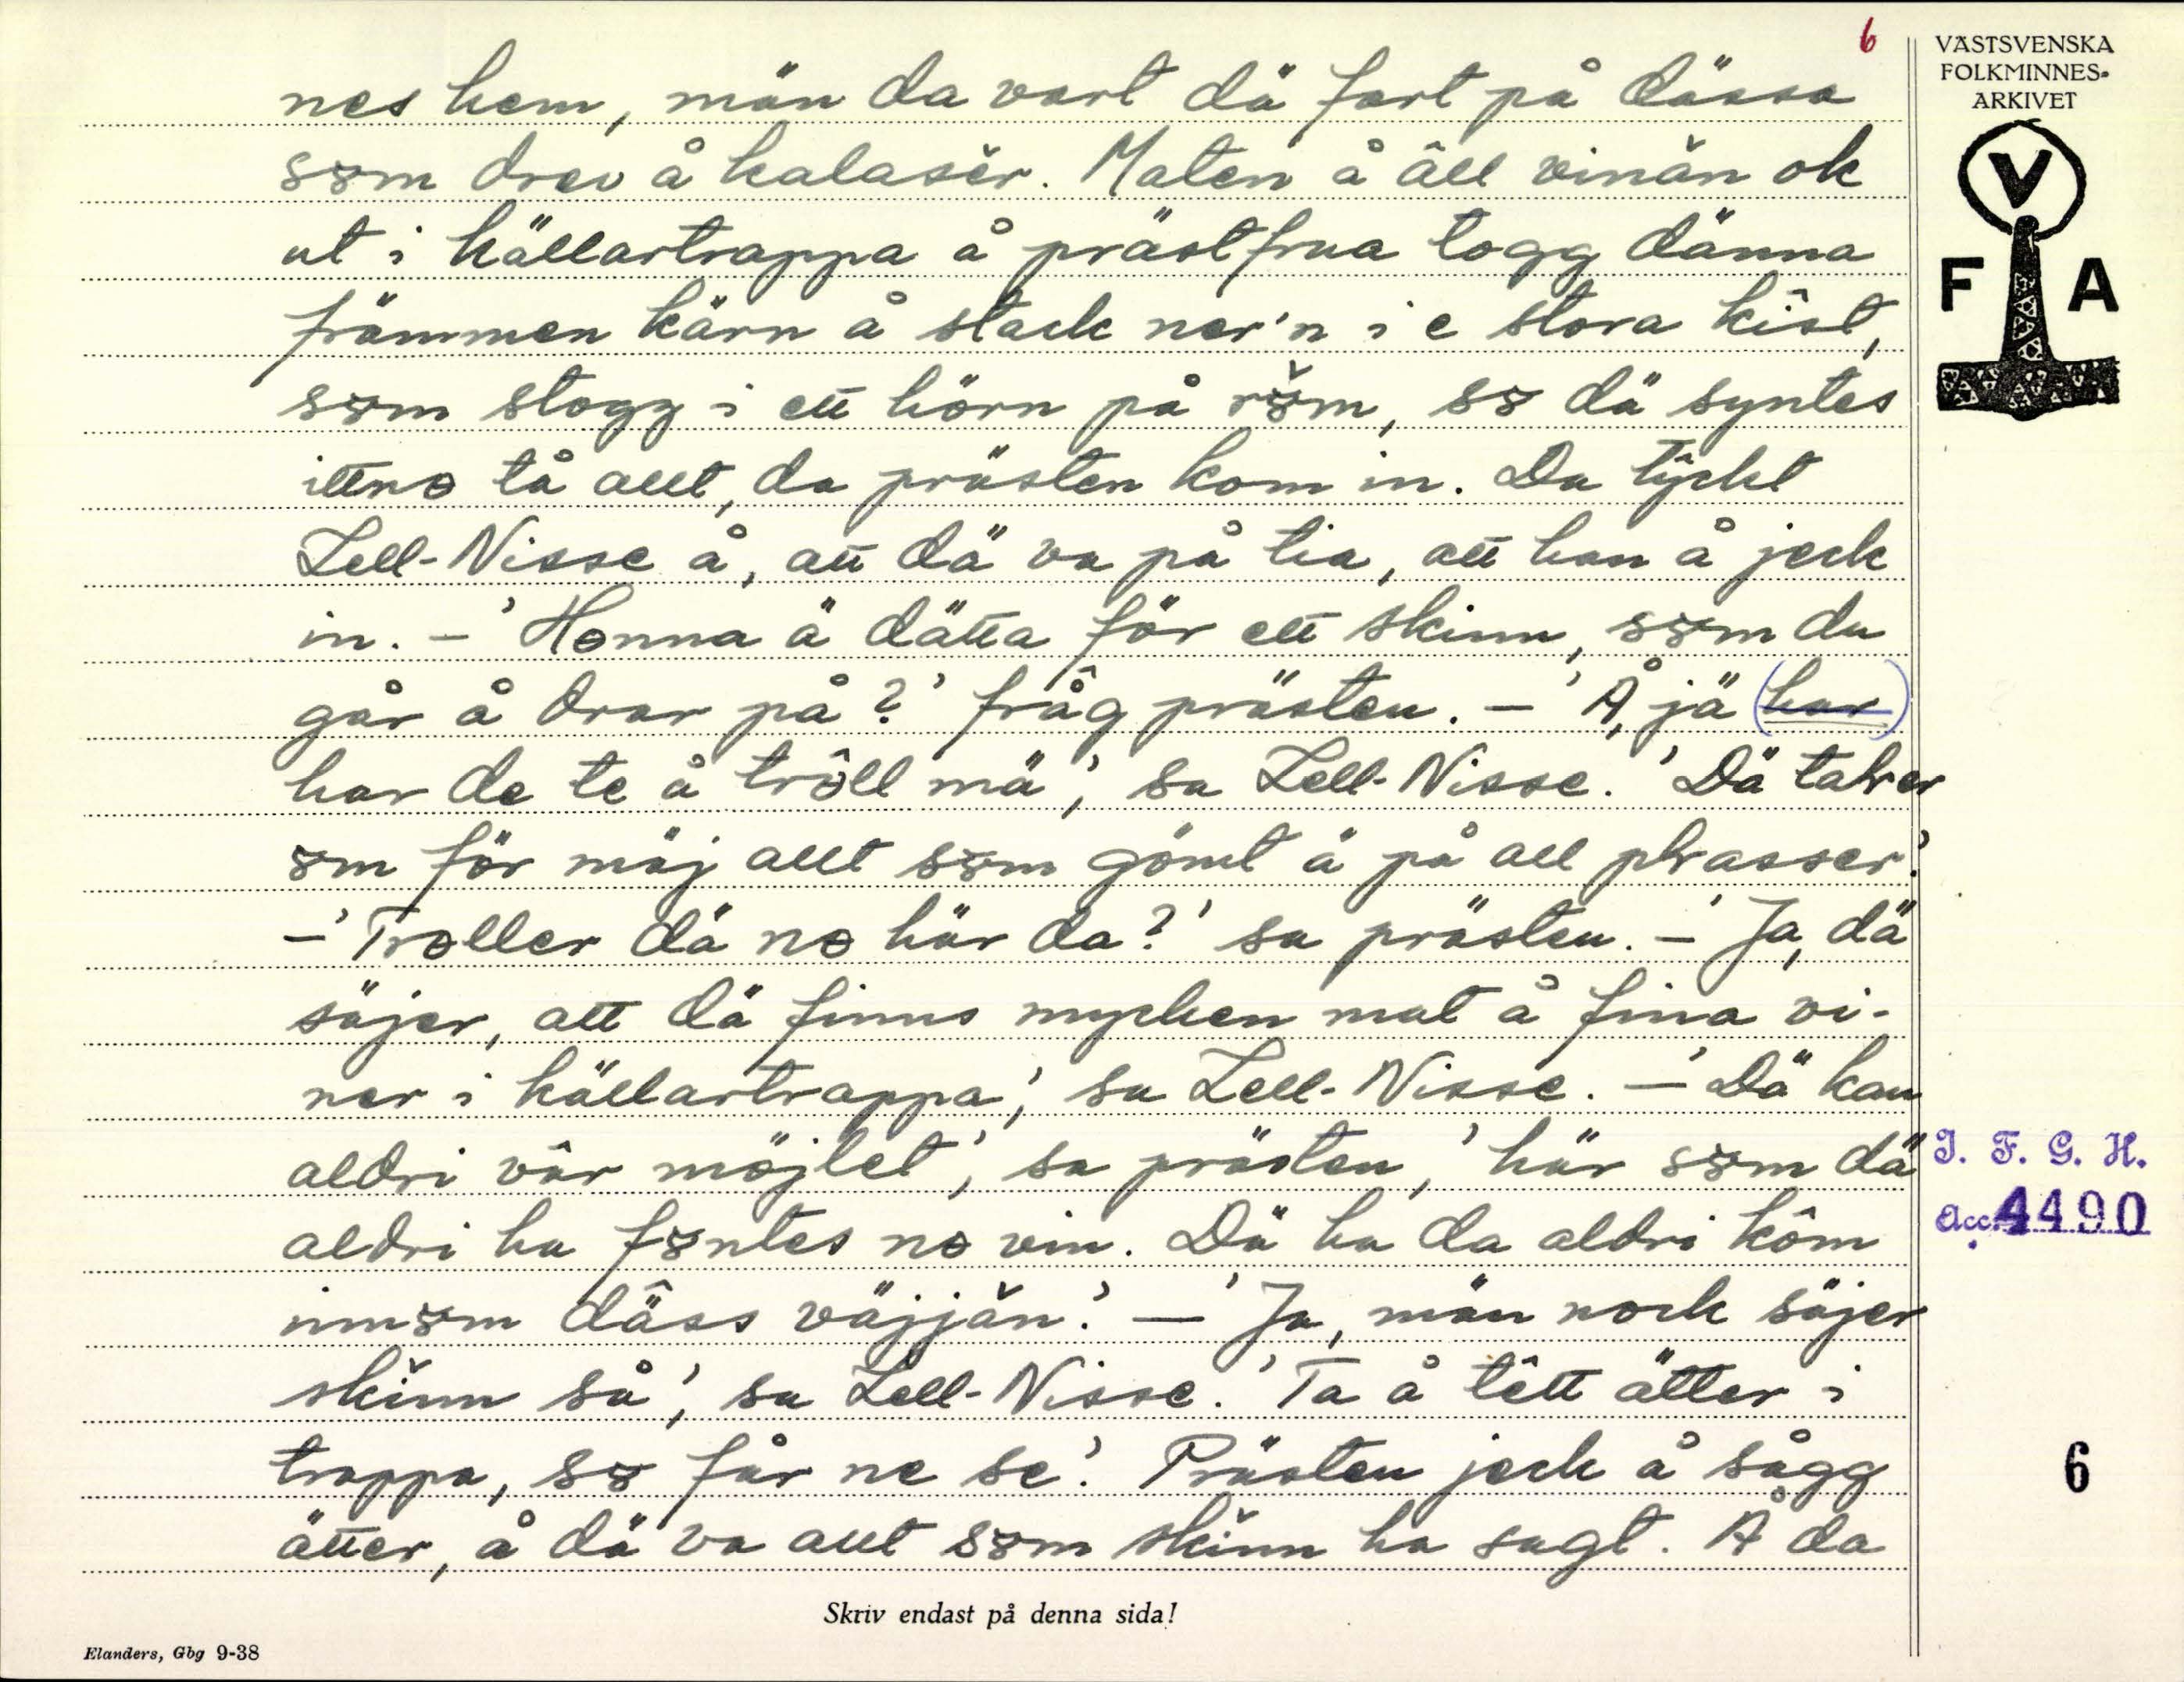 6
VÄSTSVENSKA
FOLKMINNES-
ARKIVET
V
F A
nes hem, män da vart dä fart på dässa
sɷm drev å kalasěr. Maten å âll vinǎn ok
ut i källartrappa å prästfrua togg dänna
främmen kärn å stack ner'n i e stora kîst,
sɷm stogg i ett hörn på rɷ̌m, sɷ dä syntes
ittnɵ tå allt, da prästen kom in. Da tŷckt
Lell-Nisse å, att dä va på tia, att han å jeck
in. – 'Hɵnna ä dätta för ett skinn, sɷm du
går å drar på?' frâg prästen. – 'Å, jä (har)
har de te å trôll mä', sa Lell-Nisse. 'Dä talrer
ɷm för mäj allt sɷm gömt ä på all plrasser.'
– 'Trɵller dä nɵ här da?' sa prästen. – 'Ja, dä
säjer, att dä finns mycken mat å fina vi-
ner i källartrappa', sa Lell-Nisse. – 'Dä kan
aldri vâr möjlet', sa prästen, 'här sɷm dä
aldri ha fɷntes nɵ vin. Dä ha da aldri kôm
innɷm dâss väjjǎn.' – 'Ja, män nock säjer
skǐnn så', sa Lell-Nisse. 'Ta å têtt ätter i
trappa, sɷ får ne se.' Prästen jeck å sågg
ätter, å dä va allt sɷm skǐnn ha sagt. Å da
I. F. G. H.
Acc. 4490
6
Skriv endast på denna sida!
Elanders, Gbg 9-38